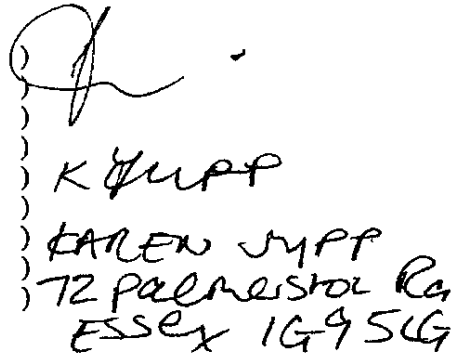 KAREN JUPP
72 Palmerston Rd
Essex IG9 5LG